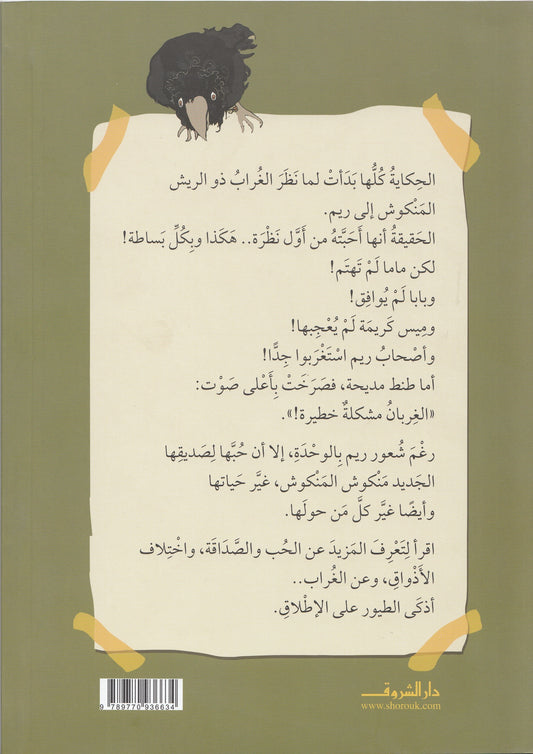 الحِكايةُ كُلُّها بَدَأتْ لما نَظَرَ الغُرابُ ذو الريش
المَنْكوش إلى ريم.
الحَقيقةُ أنها أَحَبَّتهُ من أوَّل نَظْرَة.. هَكَذا وبِكُلِّ بَساطة!
لكن ماما لَمْ تَهتَم!
وبابا لَمْ يُوافِق!
ومِيس كَريمَة لَمْ يُعْجِبها!
وأصْحابُ ريم اسْتَغْرَبوا جِدًّا!
أما طنط مديحة، فصَرَخَتْ بِأَعْلى صَوْت:
«الغِربانُ مشكلةٌ خطيرة!».
رغْمَ شُعور ريم بِالوحْدَةِ، إلا أن حُبَّها لِصَديقِها
الجَديد مَنْكوش المَنْكوش، غيَّر حَياتها
وأيضًا غيَّر كلَّ مَن حولَها.
اقرأ لِتَعْرِفَ المَزيدَ عن الحُب والصَّدَاقَة، واخْتِلاف
الأَذْواقِ، وعن الغُراب..
أذكَى الطيور على الإطْلاقِ.
9 789770 936634
دار الشروق
www.shorouk.com